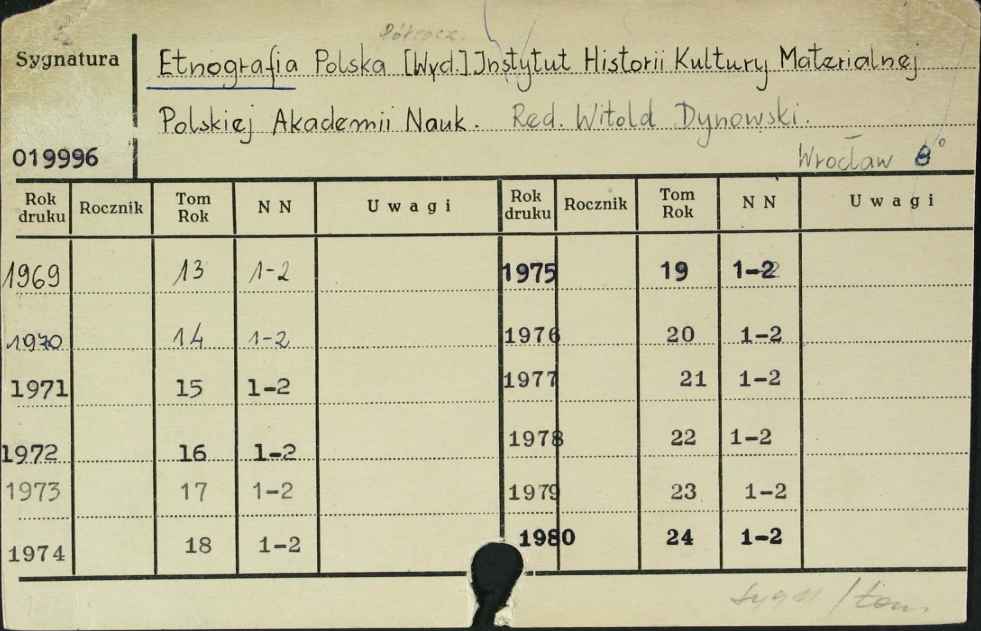 Półrocz.
Sygnatura
Etnografia Polska [Wyd.] Instytut Historii Kultury Materialnej
Polskiej Akademii Nauk. Red. Witold Dynowski.
019996
Wrocław 8°
Rok druku Rocznik Tom Rok N N Uwagi Rok druku Rocznik Tom Rok N N Uwagi
1969 13 1-2 1975 19 1-2
1970 14 1-2 1976 20 1-2
1971 15 1-2 1977 21 1-2
1972 16 1-2 1978 22 1-2
1973 17 1-2 1979 23 1-2
1974 18 1-2 1980 24 1-2